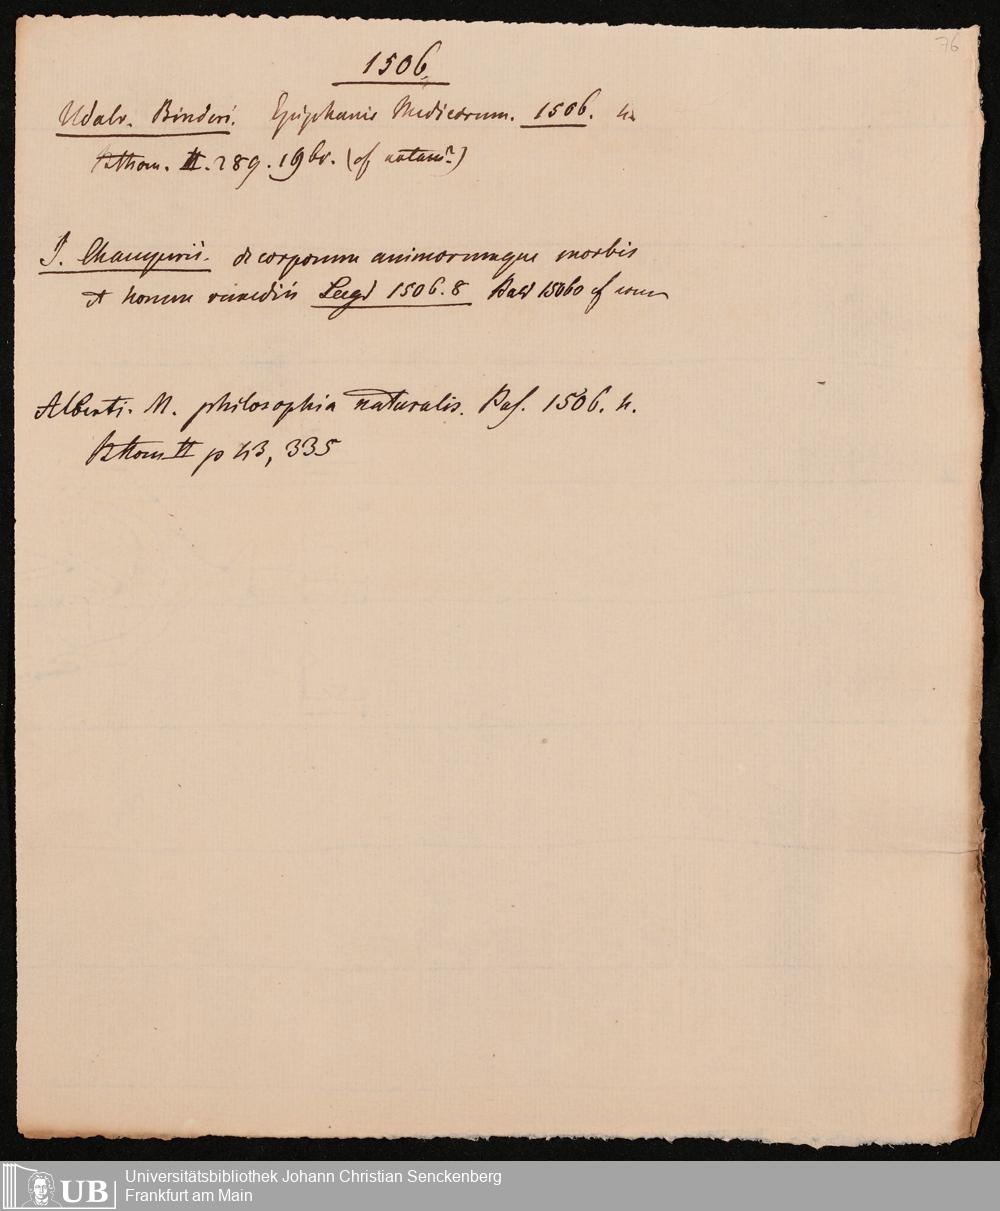 76
1506
Udalr. Binderi. Epiphanie Medicorum. 1506. 4.
II. 289. 196r. (cf
J. Champerii. de corporum animorumque morbis
et horum remediis Lugd 1506. 8 cf
Alberti. M. philosophia naturalis. Bas. 1506. 4.
II p 43, 335
UB
Universitätsbibliothek Johann Christian Senckenberg
Frankfurt am Main